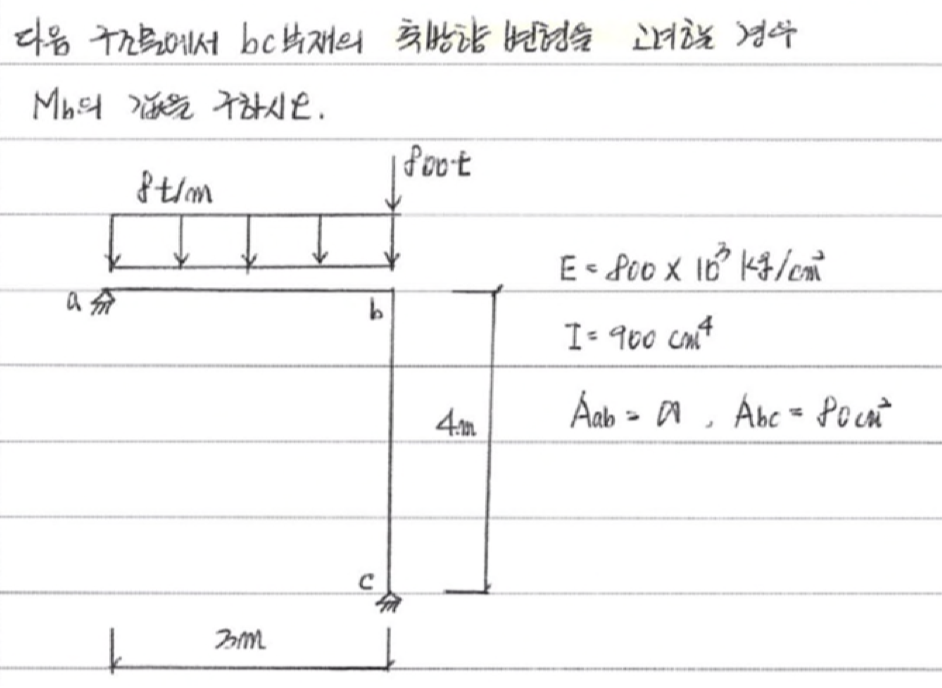 다음 구조물에서 bc부재의 축방향 변형을 고려할 경우
Mb의 값을 구하시오.
800t
8t/m
E = 800 × 10³ kg/cm²
a
b
I = 900 cm⁴
4m
Aab = ∞ , Abc = 80cm²
c
3m